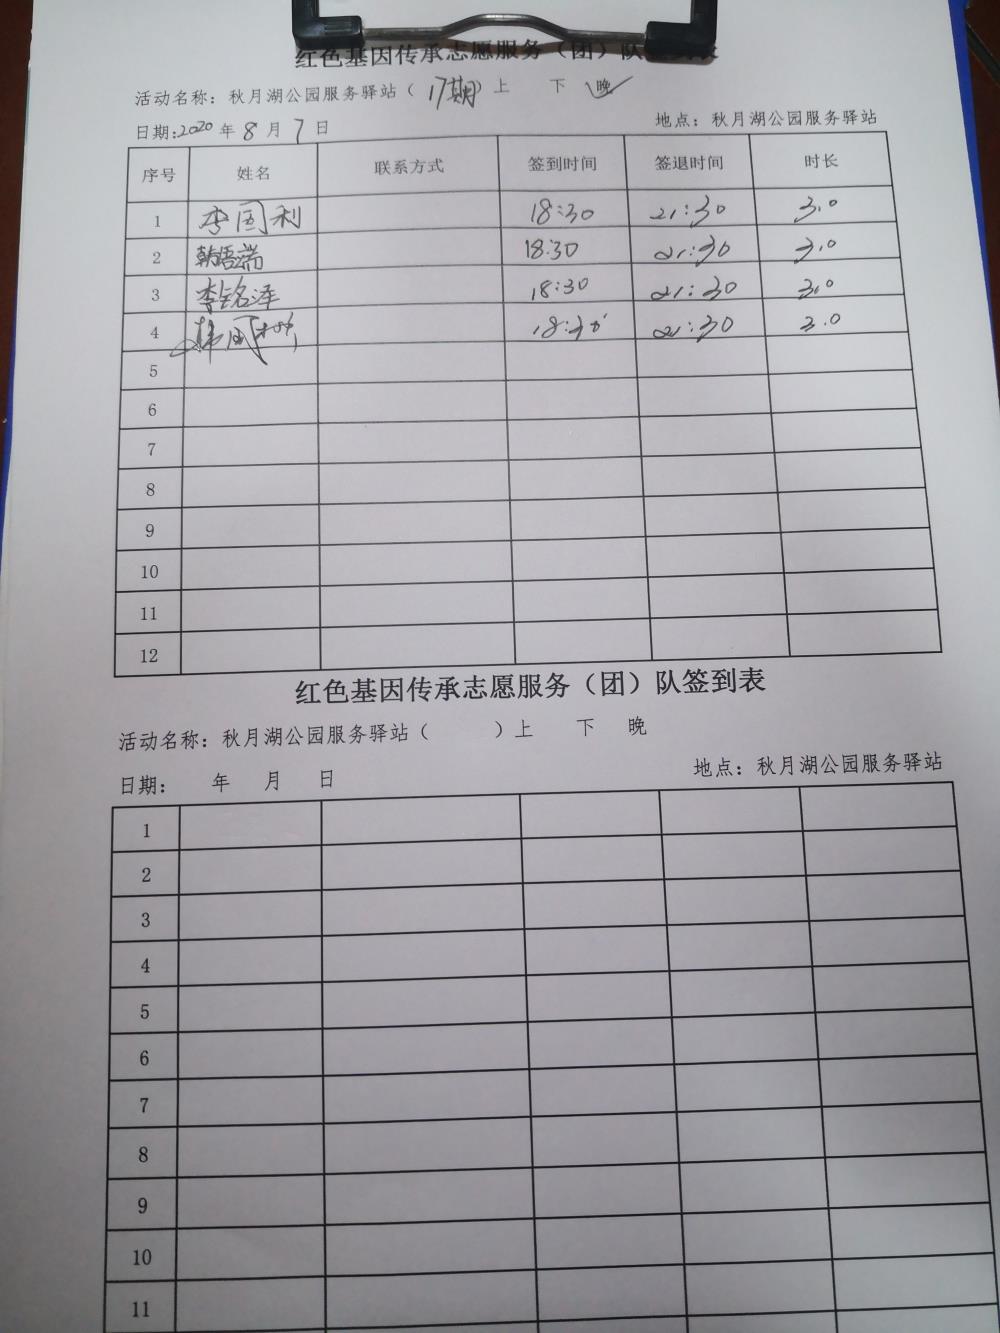 红色基因传承志愿服务（团）队签到表
活动名称：秋月湖公园服务驿站（17期）上 下 晚✓
日期：2020年8月7日 地点：秋月湖公园服务驿站
序号 姓名 联系方式 签到时间 签退时间 时长
1 李国利 18:30 21:30 3.0
2 韩语端 18:30 21:30 3.0
3 李铭泽 18:30 21:30 3.0
4 18:30 21:30 3.0
5
6
7
8
9
10
11
12
红色基因传承志愿服务（团）队签到表
活动名称：秋月湖公园服务驿站（ ）上 下 晚
日期： 年 月 日 地点：秋月湖公园服务驿站
1
2
3
4
5
6
7
8
9
10
11